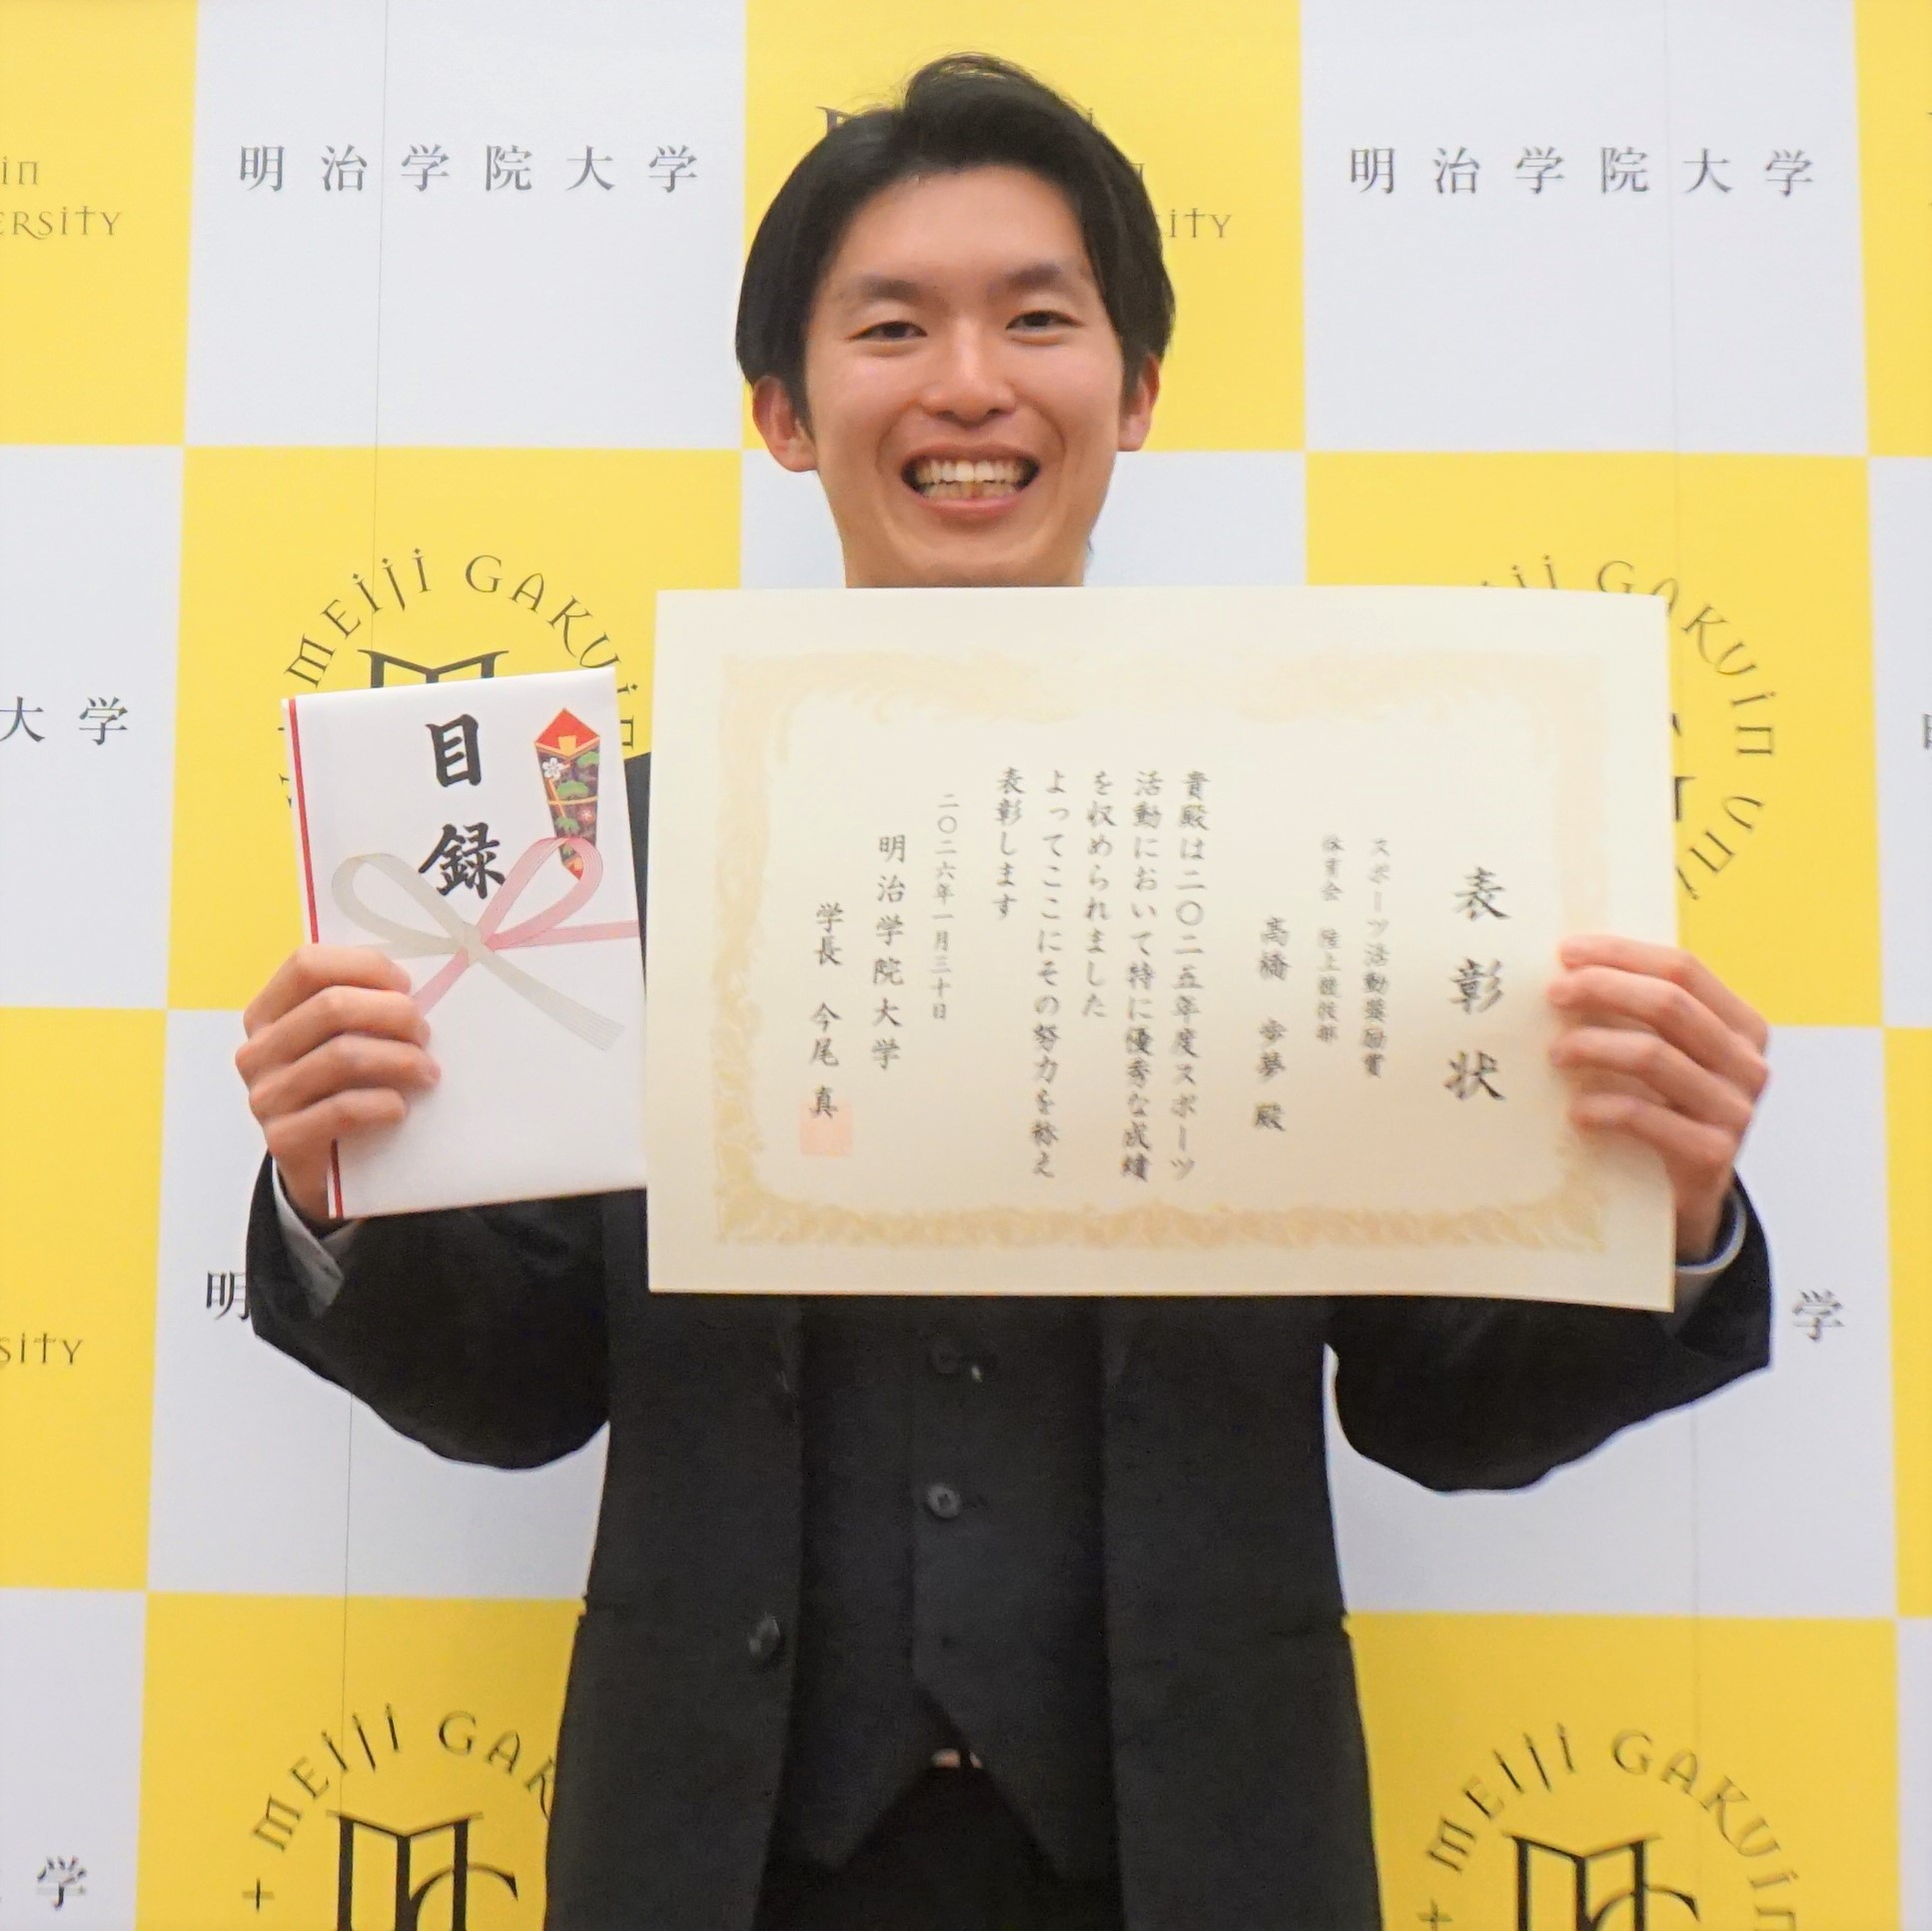 明治学院大学
明治学院大学
in
ERSITY
ITY
MEIJI GAKUIN
大学
目録
表彰状
スポーツ活動奨励賞
体育会 陸上競技部
高橋 歩夢 殿
貴殿は二〇二五年度スポーツ
活動において特に優秀な成績
を収められました
よってここにその努力を称え
表彰します
二〇二六年一月三十日
明治学院大学
学長 今尾 真
GAKUIN UNI
明
学
SITY
MEIJI GAK
MEIJI GAKUIN
学